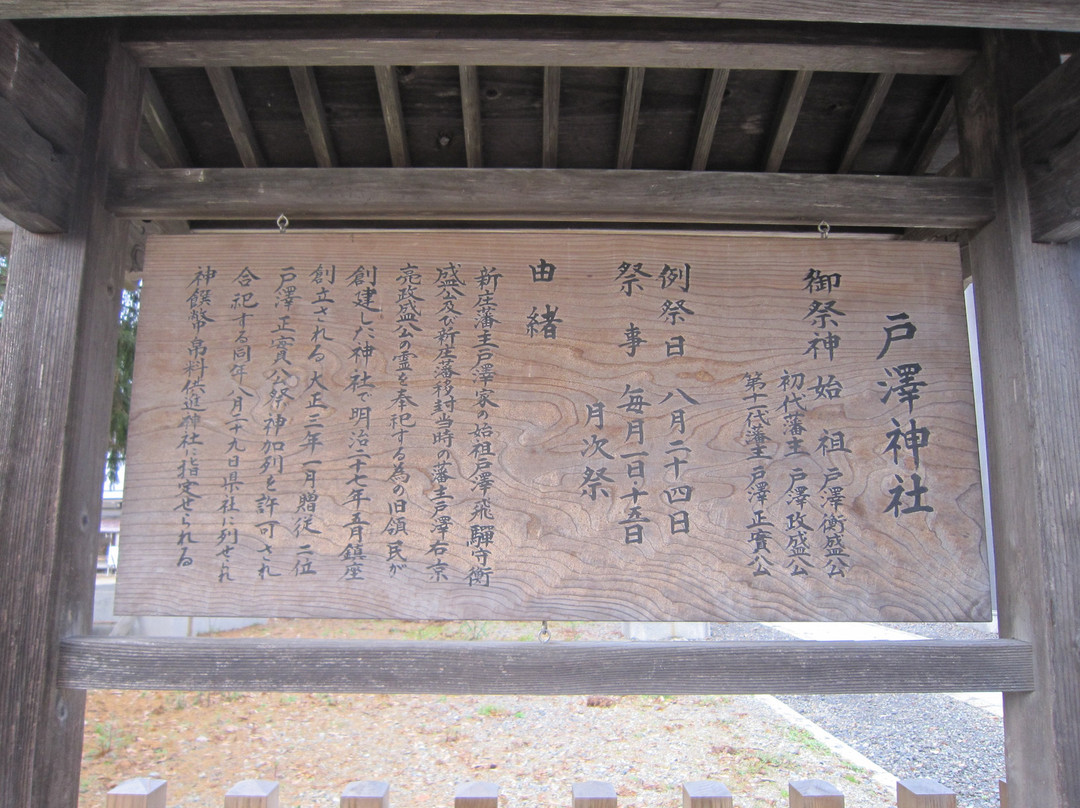 戸澤神社
御祭神 始祖 戸澤衡盛公
初代藩主 戸澤政盛公
第十一代藩主 戸澤正實公
例祭日 八月二十四日
祭事 毎月一日・十五日
月次祭
由緒
新庄藩主戸澤家の始祖戸澤飛驒守衡
盛公及び新庄藩移封当時の藩主戸澤右京
亮政盛公の霊を奉祀する為の旧領民が
創建した神社で明治二十七年五月鎮座
創立される大正三年一月贈従二位
戸澤正實公祭神加列を許可され
合祀する同年八月十九日県社に列せられ
神饌幣帛料供進神社に指定せられる